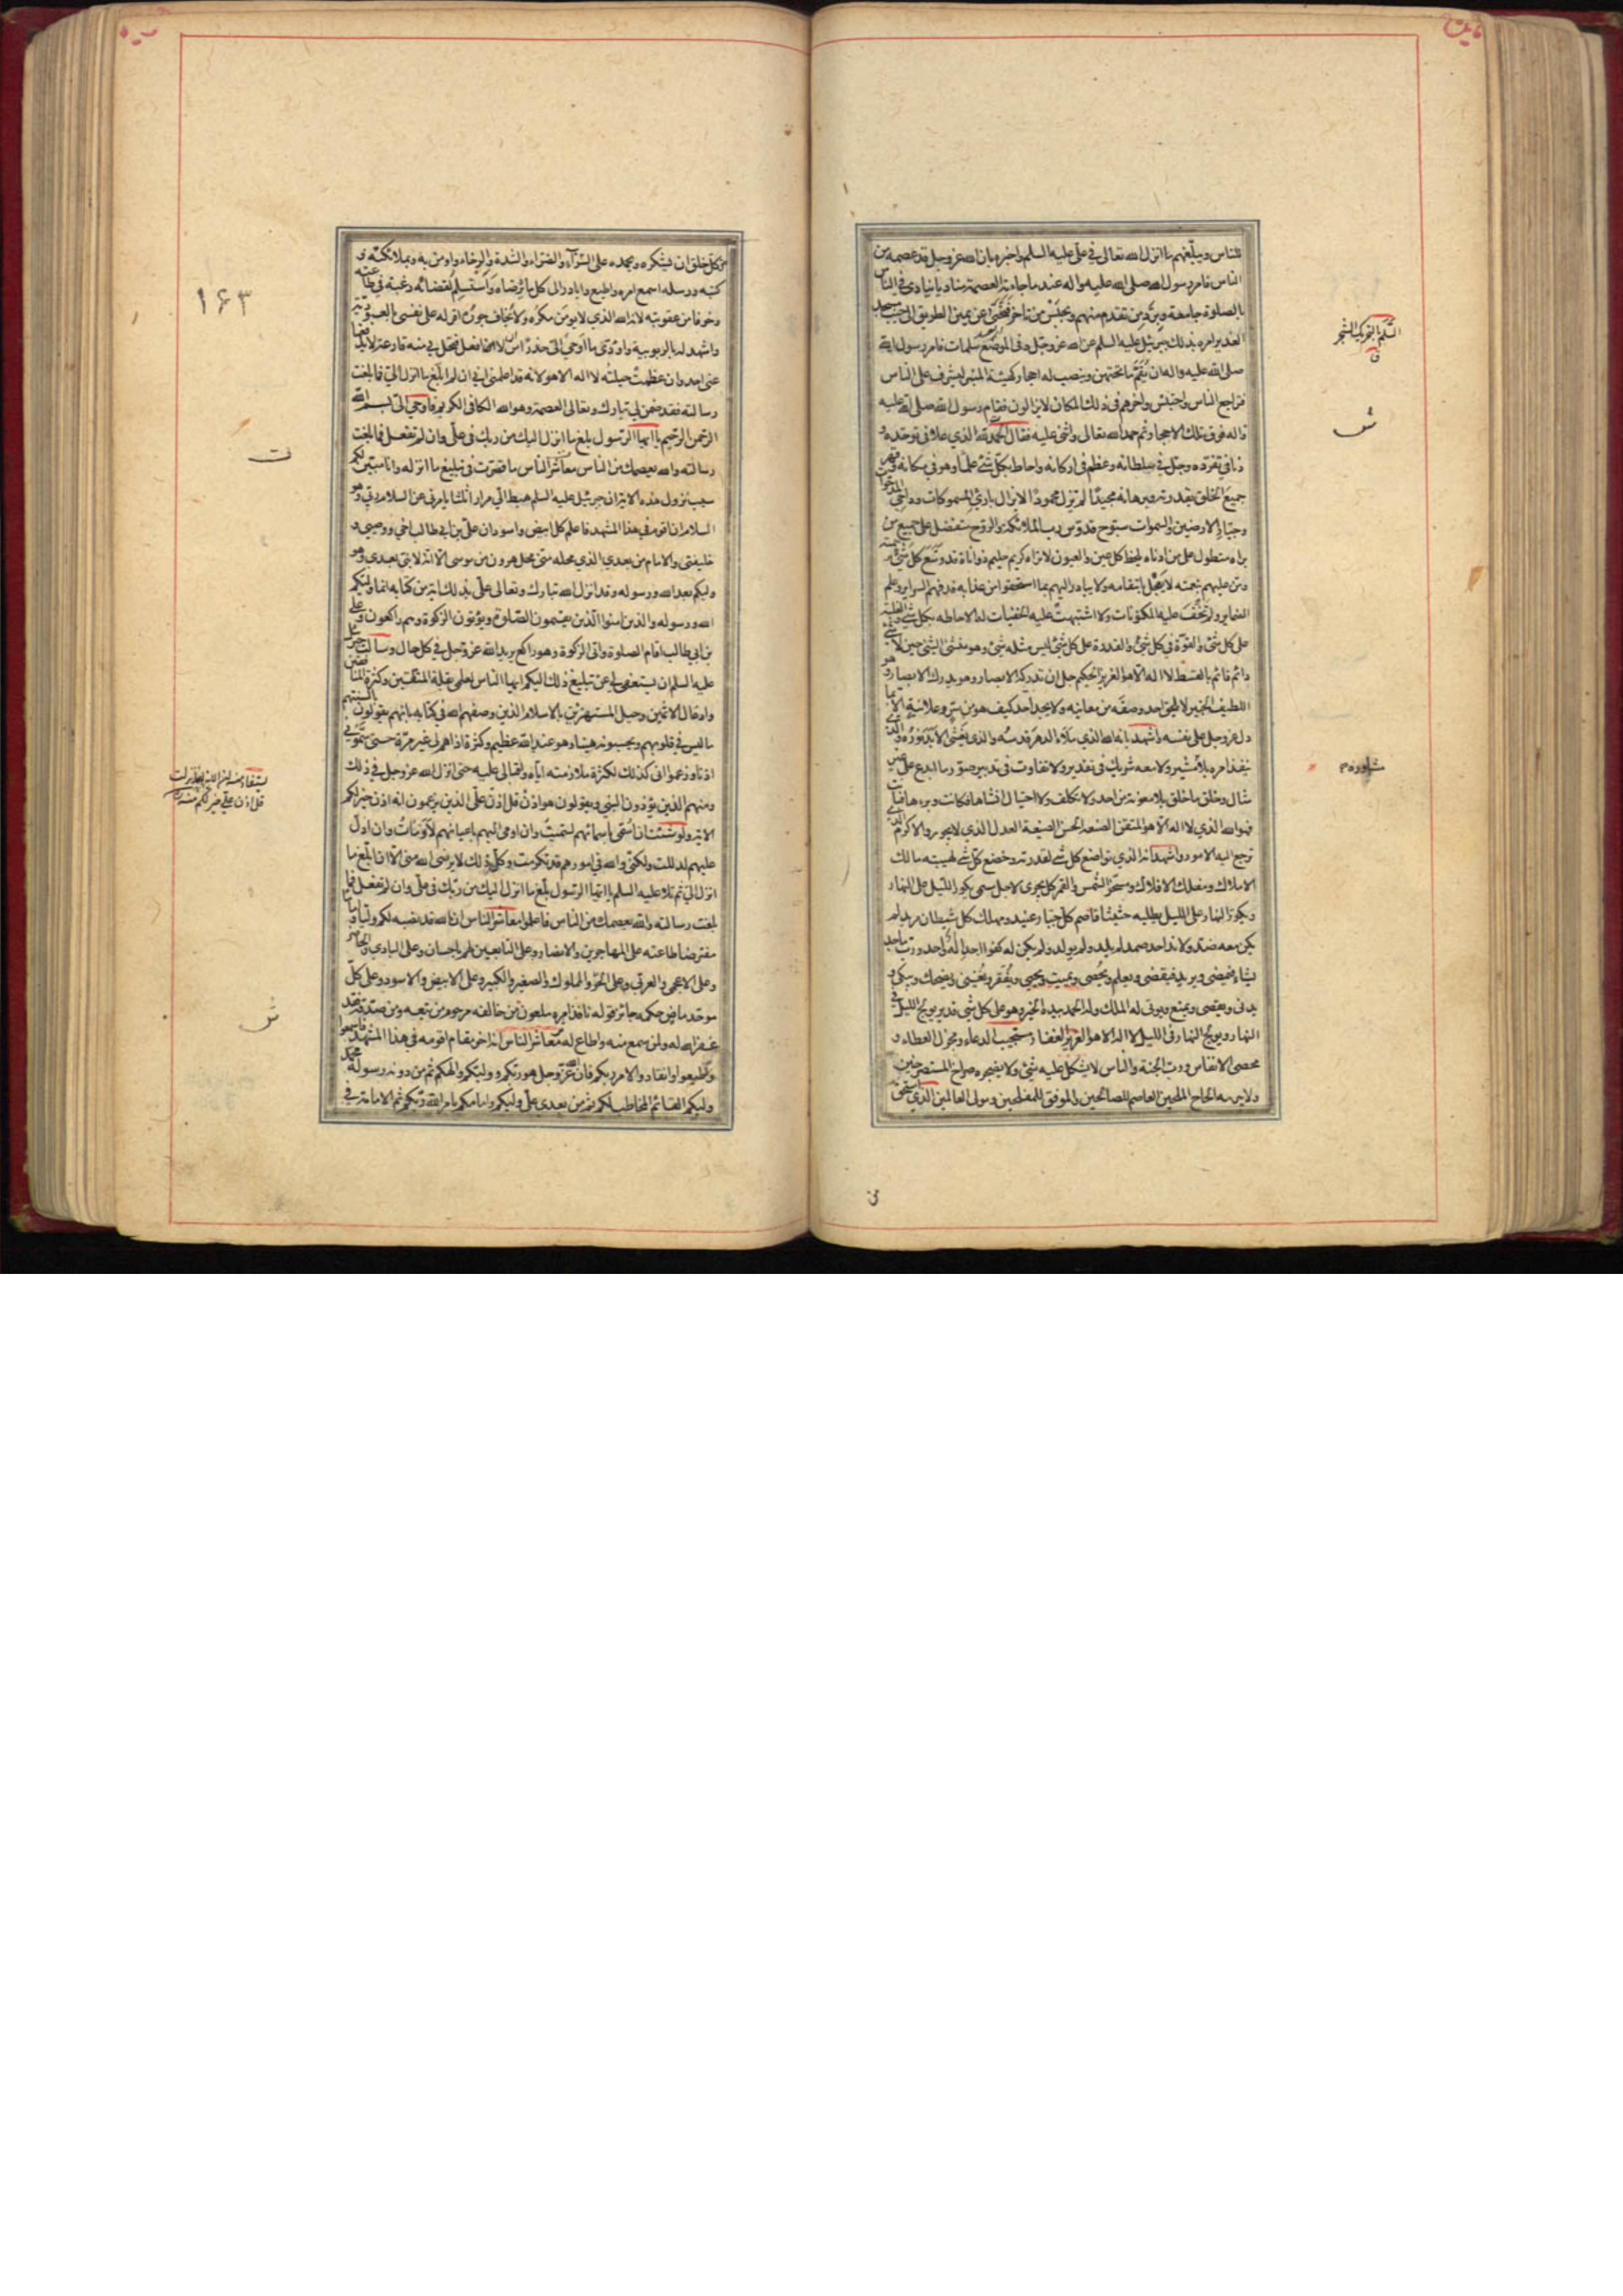 للناس ويبلغهم ما انزل الله تعالى في علي عليه السلم واخبره بان الله عز وجل قد عصمه من
الناس فامر رسول الله صلى الله عليه واله عند ما جاءته العصمة مناديا ينادي في الناس
بالصلوة جامعة ويرد من تقدم منهم ويحبس من تاخر فتنحى عن يمين الطريق الى جنب مسجد
الغدير امره بذلك جبرئيل عليه السلم عن الله عز وجل وفي الموضع سلمات فامر رسول الله
صلى الله عليه واله ان يقم ما تحتهن وينصب له احجار كهيئة المنبر ليشرف على الناس
فتراجع الناس واحتبس واخرهم في ذلك المكان لا يزالون فقام رسول الله صلى الله عليه
واله فوق تلك الاحجار ثم حمد الله تعالى واثنى عليه فقال الحمد لله الذي علا في توحده و
دنا في تفرده وجل في سلطانه وعظم في اركانه واحاط بكل شئ علما وهو في مكانه وقهر
جميع الخلق بقدرته وبرهانه مجيدا لم يزل محمودا لا يزال بارئ المسموكات وداحي المدحوات
وجبار الارضين والسموات سبوح قدوس رب الملائكة والروح متفضل على جميع من
براه متطول على من ادناه يلحظ كل عين والعيون لا تراه كريم حليم ذو اناة قد وسع كل شئ رحمته
ومن عليهم بنعمته لا يعجل بانتقامه ولا يبادر اليهم بما استحقوا من عذابه قد فهم السراير وعلم
الضماير ولم تخف عليه المكنونات ولا اشتبهت عليه الخفيات له الاحاطه بكل شئ والغلبة
على كل شئ والقوة في كل شئ والقدرة على كل شئ ليس مثله شئ وهو منشئ الشئ حين لا شئ
دائم قائم بالقسط لا اله الا هو العزيز الحكيم جل ان تدركه الابصار وهو يدرك الابصار وهو
اللطيف الخبير لا يلحق احد وصفه من معاينه ولا يجد احد كيف هو من سر وعلانية الا بما
دل عز وجل على نفسه واشهد بانه الله الذي ملاء الدهر قدسه والذي يغشى الابد نوره والذي
ينفذ امره بلا مشير ولا معه شريك في تقدير ولا تفاوت في تدبير صور ما ابدع على غير
مثال وخلق ما خلق بلا معونة من احد ولا تكلف ولا احتيال انشاها فكانت وبراها فبانت
فهو الله الذي لا اله الا هو المتقن الصنعه الحسن الصنيعة العدل الذي لا يجور والاكرم الذي
ترجع اليه الامور واشهد انه الذي تواضع كل شئ لقدرته وخضع كل شئ لهيبته مالك
الاملاك ومفلك الافلاك ومسخر الشمس والقمر كل يجرى لاجل مسمى يكور الليل على النهار
ويكور النهار على الليل يطلبه حثيثا قاصم كل جبار عنيد ومهلك كل شيطان مريد لم
يكن معه ضد ولا ند احد صمد لم يلد ولم يولد ولم يكن له كفوا احد اله واحد ورب ماجد
يشاء فيمضى ويريد فيقضى ويعلم ويحصى ويميت ويحيى ويفقر ويغنى ويضحك ويبكى و
يدنى ويقصى ويمنع ويوتى له الملك وله الحمد بيده الخير وهو على كل شى قدير يولج الليل في
النهار ويولج النهار في الليل لا اله الا هو العزيز الغفار مستجيب الدعاء ومجزل العطاء و
محصى الانفاس ورب الجنة والناس لا يشكل عليه شئ ولا يضجره صراخ المستصرخين
ولا يبرمه الحاح الملحين العاصم للصالحين والموفق للمفلحين ومولى العالمين الذي استحق
السلم بالتحريك الشجر
ق
ش
شاوره م
من كل خلق ان يشكره ويحمده على السرآء والضراء والشدة والرخاء واومن به وبملائكته و
كتبه ورسله اسمع امره واطيع وابادر الى كل ما يرضاه واستسلم لقضائه رغبة في طاعته
وخوفا من عقوبته لانه الله الذي لا يومن مكره ولا يخاف جوره اقر له على نفسى بالعبودية
واشهد له بالربوبية واودى ما اوحى الى حذرا من ان لا افعل فتحل بي منه قارعة لا يدفعها
عنى احد وان عظمت حيلته لا اله الا هو لانه قد اعلمنى انى ان لم ابلغ ما انزل الى فما بلغت
رسالته فقد ضمن لي تبارك وتعالى العصمة وهو الله الكافى الكريم فاوحى الى بسم الله
الرحمن الرحيم يا ايها الرسول بلغ ما انزل اليك من ربك في على وان لم تفعل فما بلغت
رسالته والله يعصمك من الناس معاشر الناس ما قصرت في تبليغ ما انزله وانا مبين لكم
سبب نزول هذه الاية ان جبرئيل عليه السلم هبط الى مرارا ثلثا يامرنى عن السلام ربى وهو
السلام ان اقوم في هذا المشهد فاعلم كل ابيض واسود ان على بن ابي طالب اخى ووصيى و
خليفتى والامام من بعدى الذي محله منى محل هرون من موسى الا انه لا نبى بعدى وهو
وليكم بعد الله ورسوله وقد انزل الله تبارك وتعالى على بذلك اية من كتابه انما وليكم
الله ورسوله والذين امنوا الذين يقيمون الصلوة ويؤتون الزكوة وهم راكعون وعلى
بن ابي طالب اقام الصلوة واتى الزكوة وهو راكع يريد الله عز وجل في كل حال وسالت جبرئيل
عليه السلم ان يستعفى لي عن تبليغ ذلك اليكم ايها الناس لعلمى بقلة المتقين وكثرة المنافقين
وادغال الاثمين وحيل المستهزئين بالاسلام الذين وصفهم الله في كتابه بانهم يقولون بالسنتهم
ما ليس في قلوبهم ويحسبونه هينا وهو عند الله عظيم وكثرة اذاهم لى غير مرة حتى سمونى
اذنا وزعموا انى كذلك لكثرة ملازمته اياى واقبالى عليه حتى انزل الله عز وجل في ذلك
ومنهم الذين يؤذون النبي ويقولون هو اذن قل اذن على الذين يزعمون انه اذن خير لكم
الاية ولو شئت ان اسمى باسمائهم لسميت وان اومئ اليهم باعيانهم لاومات وان ادل
عليهم لدللت ولكنى والله في امورهم قد تكرمت وكل ذلك لا يرضى الله منى الا ان ابلغ ما
انزل الى ثم تلا عليه السلم يا ايها الرسول بلغ ما انزل اليك من ربك في على وان لم تفعل فما
بلغت رسالته والله يعصمك من الناس فاعلموا معاشر الناس ان الله قد نصبه لكم وليا واماما
مفترضا طاعته على المهاجرين والانصار وعلى التابعين لهم باحسان وعلى البادى والحاضر
وعلى الاعجمى والعربى وعلى الحر والمملوك والصغير والكبير وعلى الابيض والاسود وعلى كل
موحد ماض حكمه جائز قوله نافذ امره ملعون من خالفه مرحوم من تبعه ومن صدقه فقد
غفر الله له ولمن سمع منه واطاع له معاشر الناس انه اخر مقام اقومه في هذا المشهد فاسمعوا
واطيعوا وانقادوا لامر ربكم فان الله عز وجل هو ربكم ووليكم والهكم ثم من دونه رسوله محمد
وليكم القائم المخاطب لكم ثم من بعدى على وليكم وامامكم بامر الله ربكم ثم الامامة في
۱۶۳
ت
ش